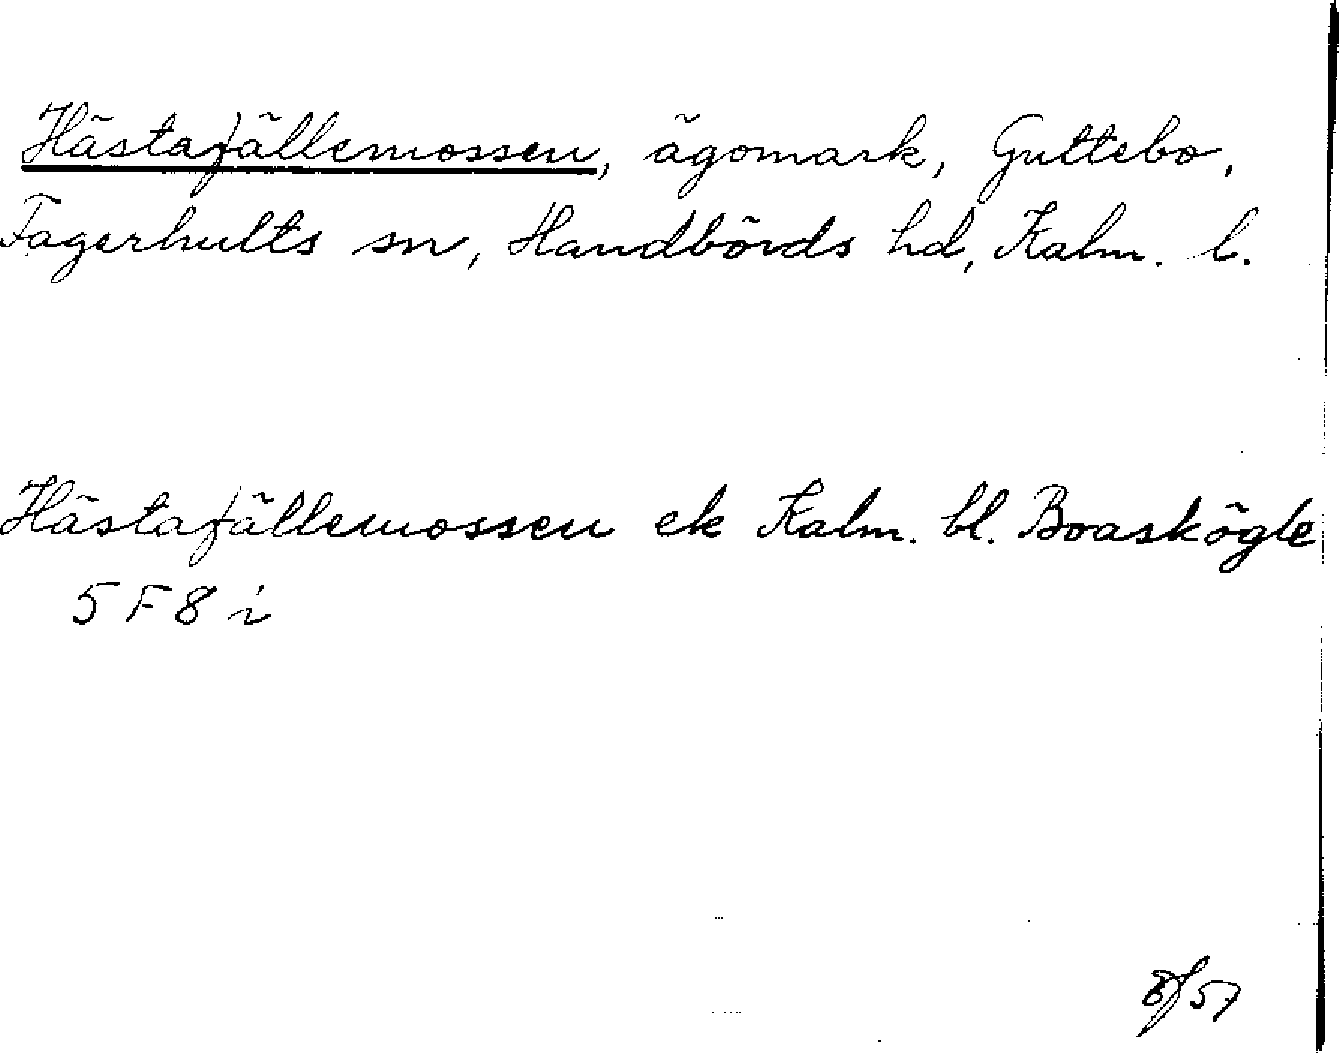 Hästafällemossen, ägomark, Guttebo,
Fagerhults sn, Handbörds hd, Kalm. l.
Hästafällemossen ek Kalm. bl. Boaskögle
5 F 8 i
57